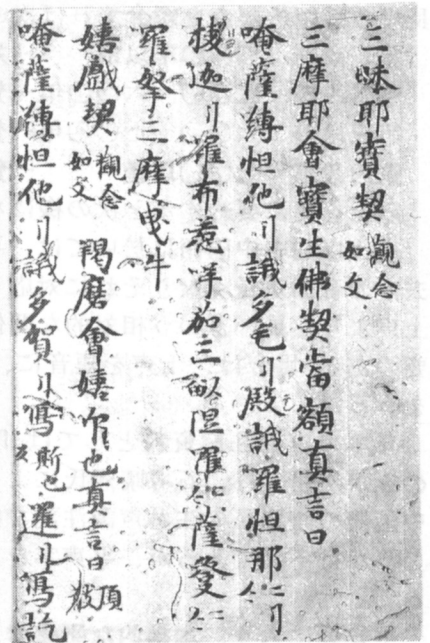 三昧耶寶契觀念如文
三摩耶會寶生佛契當額真言曰
唵薩縛怛他刂誐多毛刂殿誐羅怛那二刂
迦刂羅布惹吽茄三畝涅羅二合薩發二合
羅拏三摩曳牛
嬉戲契觀念如文 羯磨會嬉作也真言曰頂
唵薩縛怛他刂誐多賀刂寫斯也邏刂寫訖